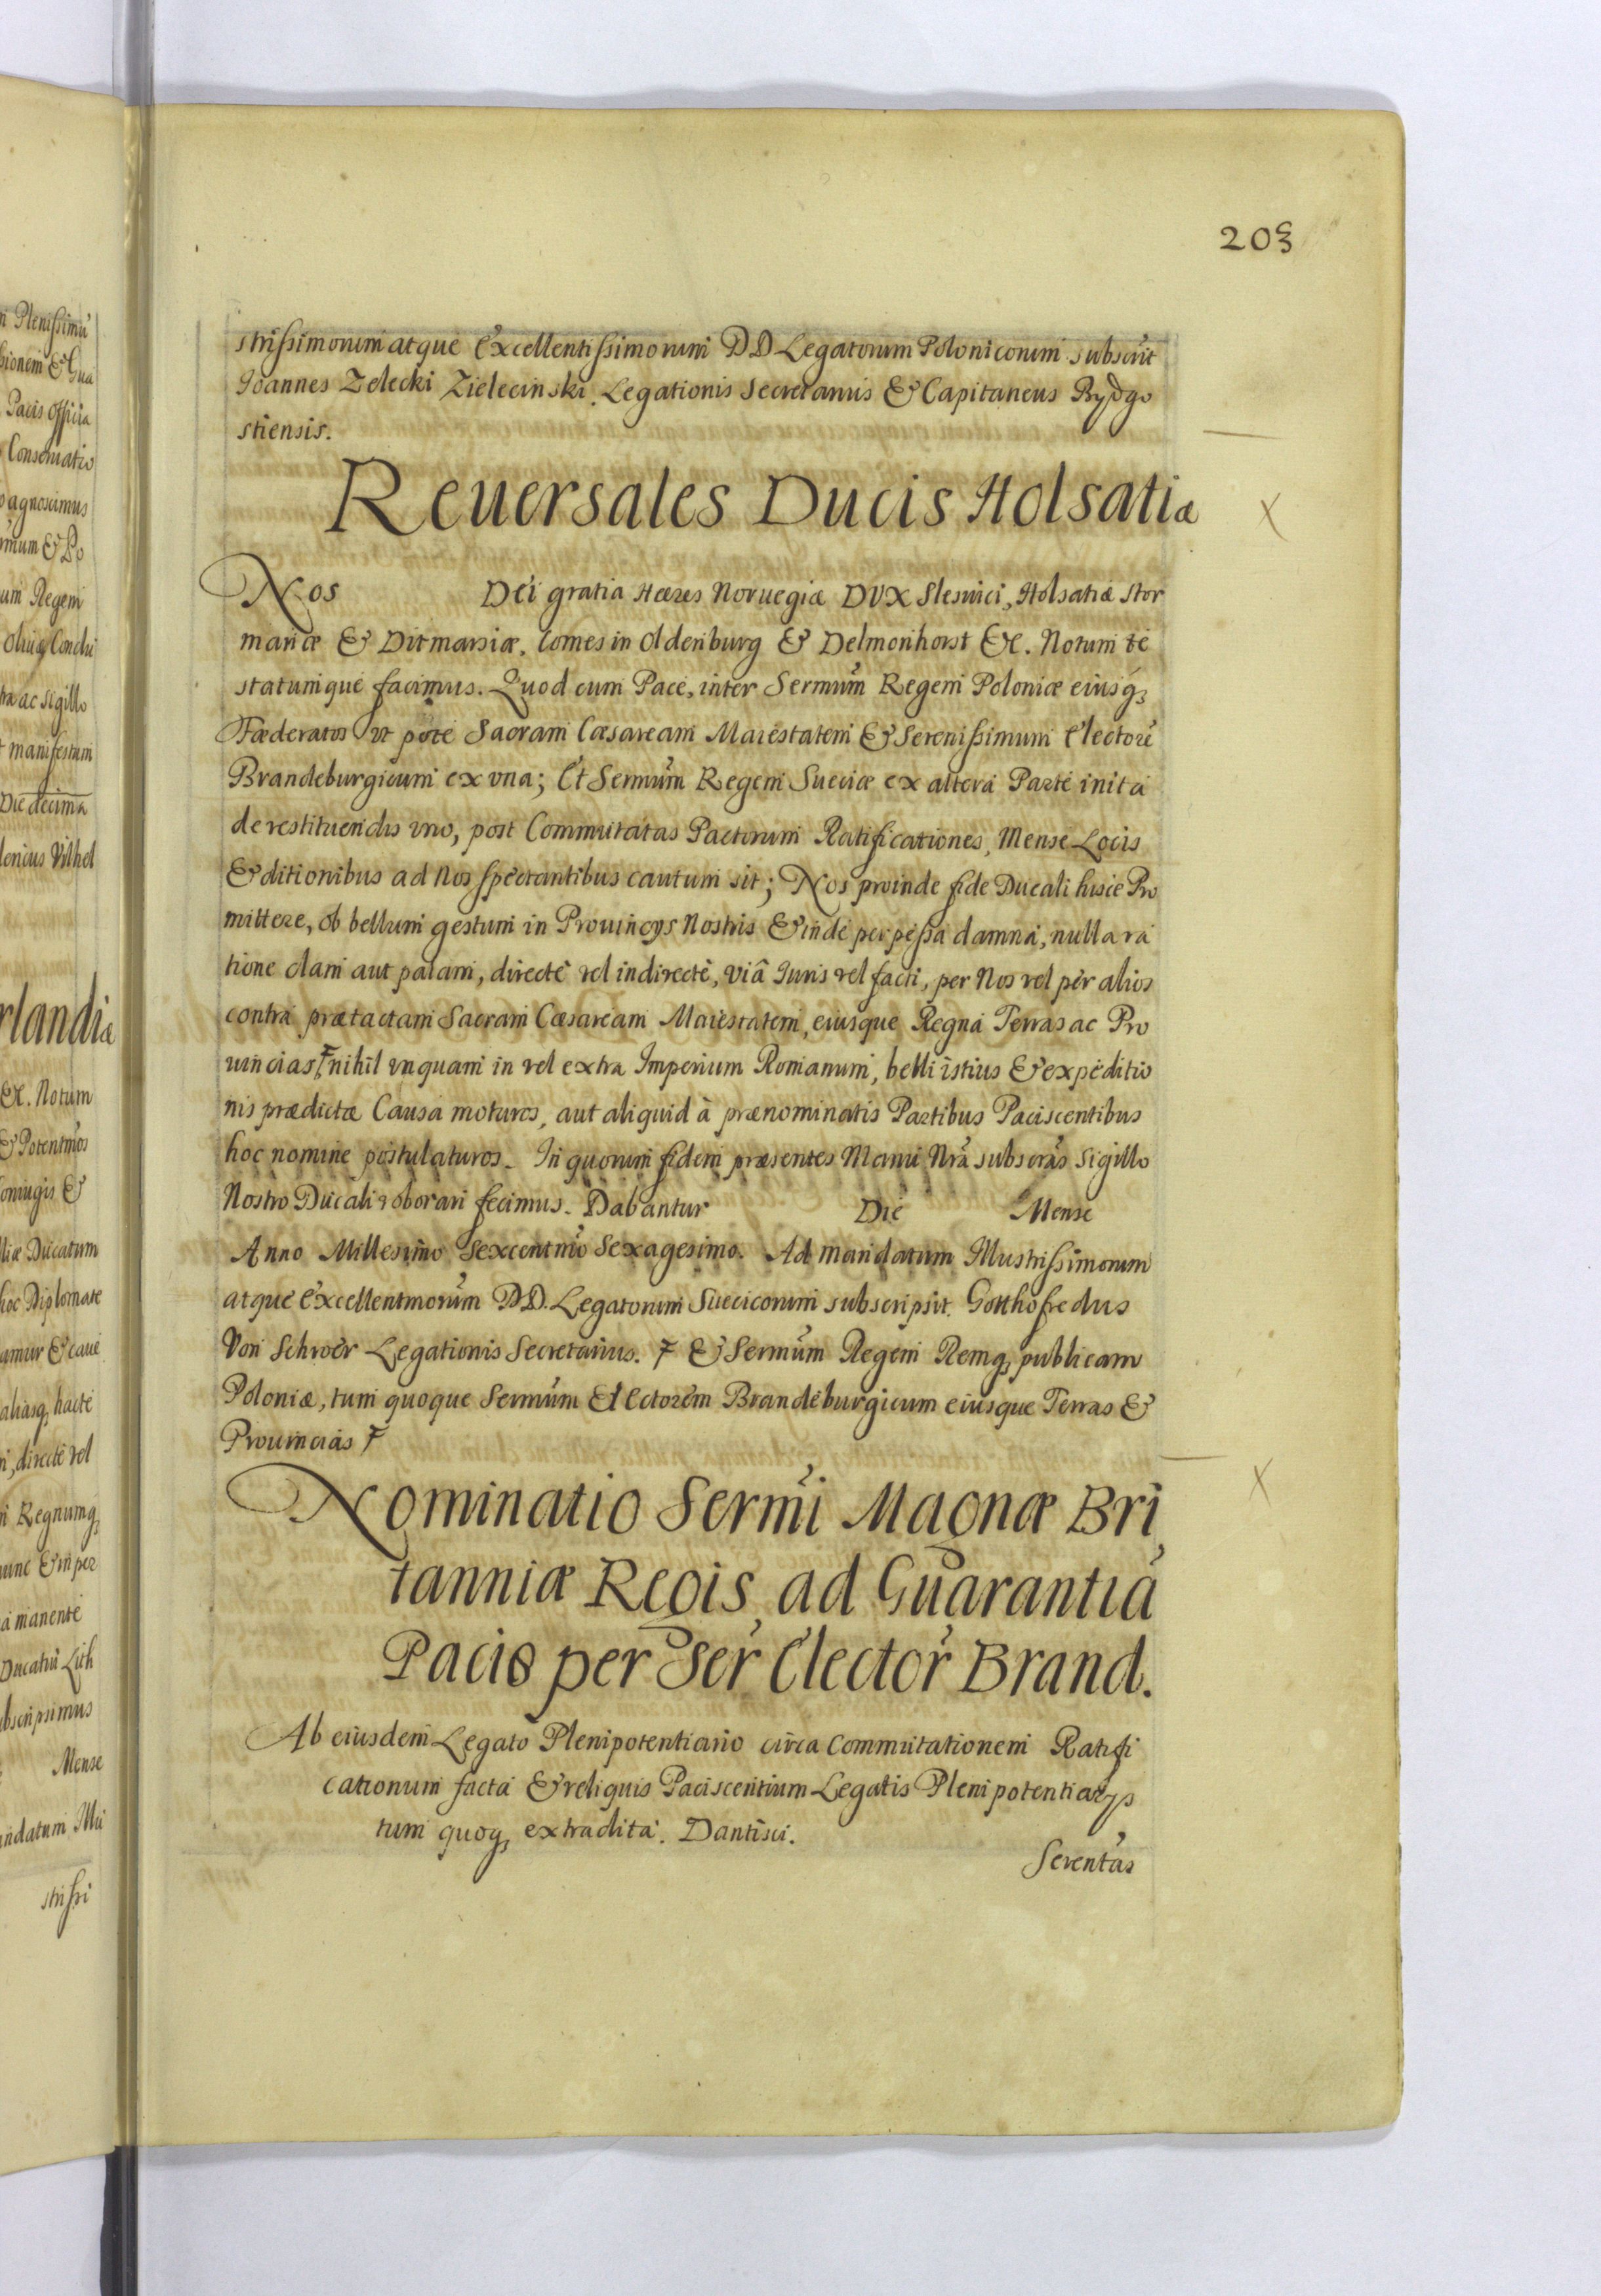 203
strissimorum atque Excellentissimorum DD Legatorum Polonicorum subscrit
Ioannes Zelecki Zielecinski. Legationis Secretarius & Capitaneus Bydgo
stiensis.
Reuersales Ducis Holsatiæ
Nos Dei gratia Hæres Noruegiæ DVX Slesuici, Holsatiæ Stor
mariæ & Ditmarsiæ, Comes in Oldenburg & Delmonhorst &c. Notum te
statumque facimus. Quod cum Pace, inter Sermum Regem Poloniæ eiusq;
Fæderatos vt pote Sacram Cæsaream Maiestatem & Serenissimum Electore
Brandeburgicum ex vna; Et Sermum Regem Sueciæ ex altera Parte inita
de restituendis vno, post Commutatas Pactorum Ratificationes, Mense Locis
& ditionibus ad Nos spectantibus cautum sit; Nos proinde fide Ducali hisce Pro
mittere, ob bellum gestum in Prouincys Nostris & inde perpessa damna, nulla ra
tione clam aut palam, directe vel indirecte, viâ Iuris vel facti, per Nos vel per alios
contra prætactam Sacram Cæsaream Maiestatem, eiusque Regna Terras ac Pro
uincias F nihil vnquam in vel extra Imperium Romanum, belli istius & expeditio
nis prædictæ Causa moturos, aut aliquid à prænominatis Partibus Paciscentibus
hoc nomine postulaturos. In quorum fidem præsentes Manu Nrã subscras Sigillo
Nostro Ducali roborari fecimus. Dabantur Die Mense
Anno Millesimo Sexcentmo Sexagesimo. Ad mandatum Illustrissimorum
atque Excellentmorum DD. Legatorum Suecicorum subscripsit. Gotthofredus
Von Schroer Legationis Secretarius. F & Sermum Regem Remq; publicam
Poloniæ, tum quoque Sermum Electorem Brandeburgicum eiusque Terras &
Prouincias F
Nominatio Sermi Magnæ Bri
tanniæ Regis ad Guarantia
Pacis per Ser Elector Brand.
Ab eiusdem Legato Plenipotentiario circa Commutationem Ratifi
cationum facta & reliquis Paciscentium Legatis Plenipotentiarys
tum quoq; extradita. Dantisci.
Serentas